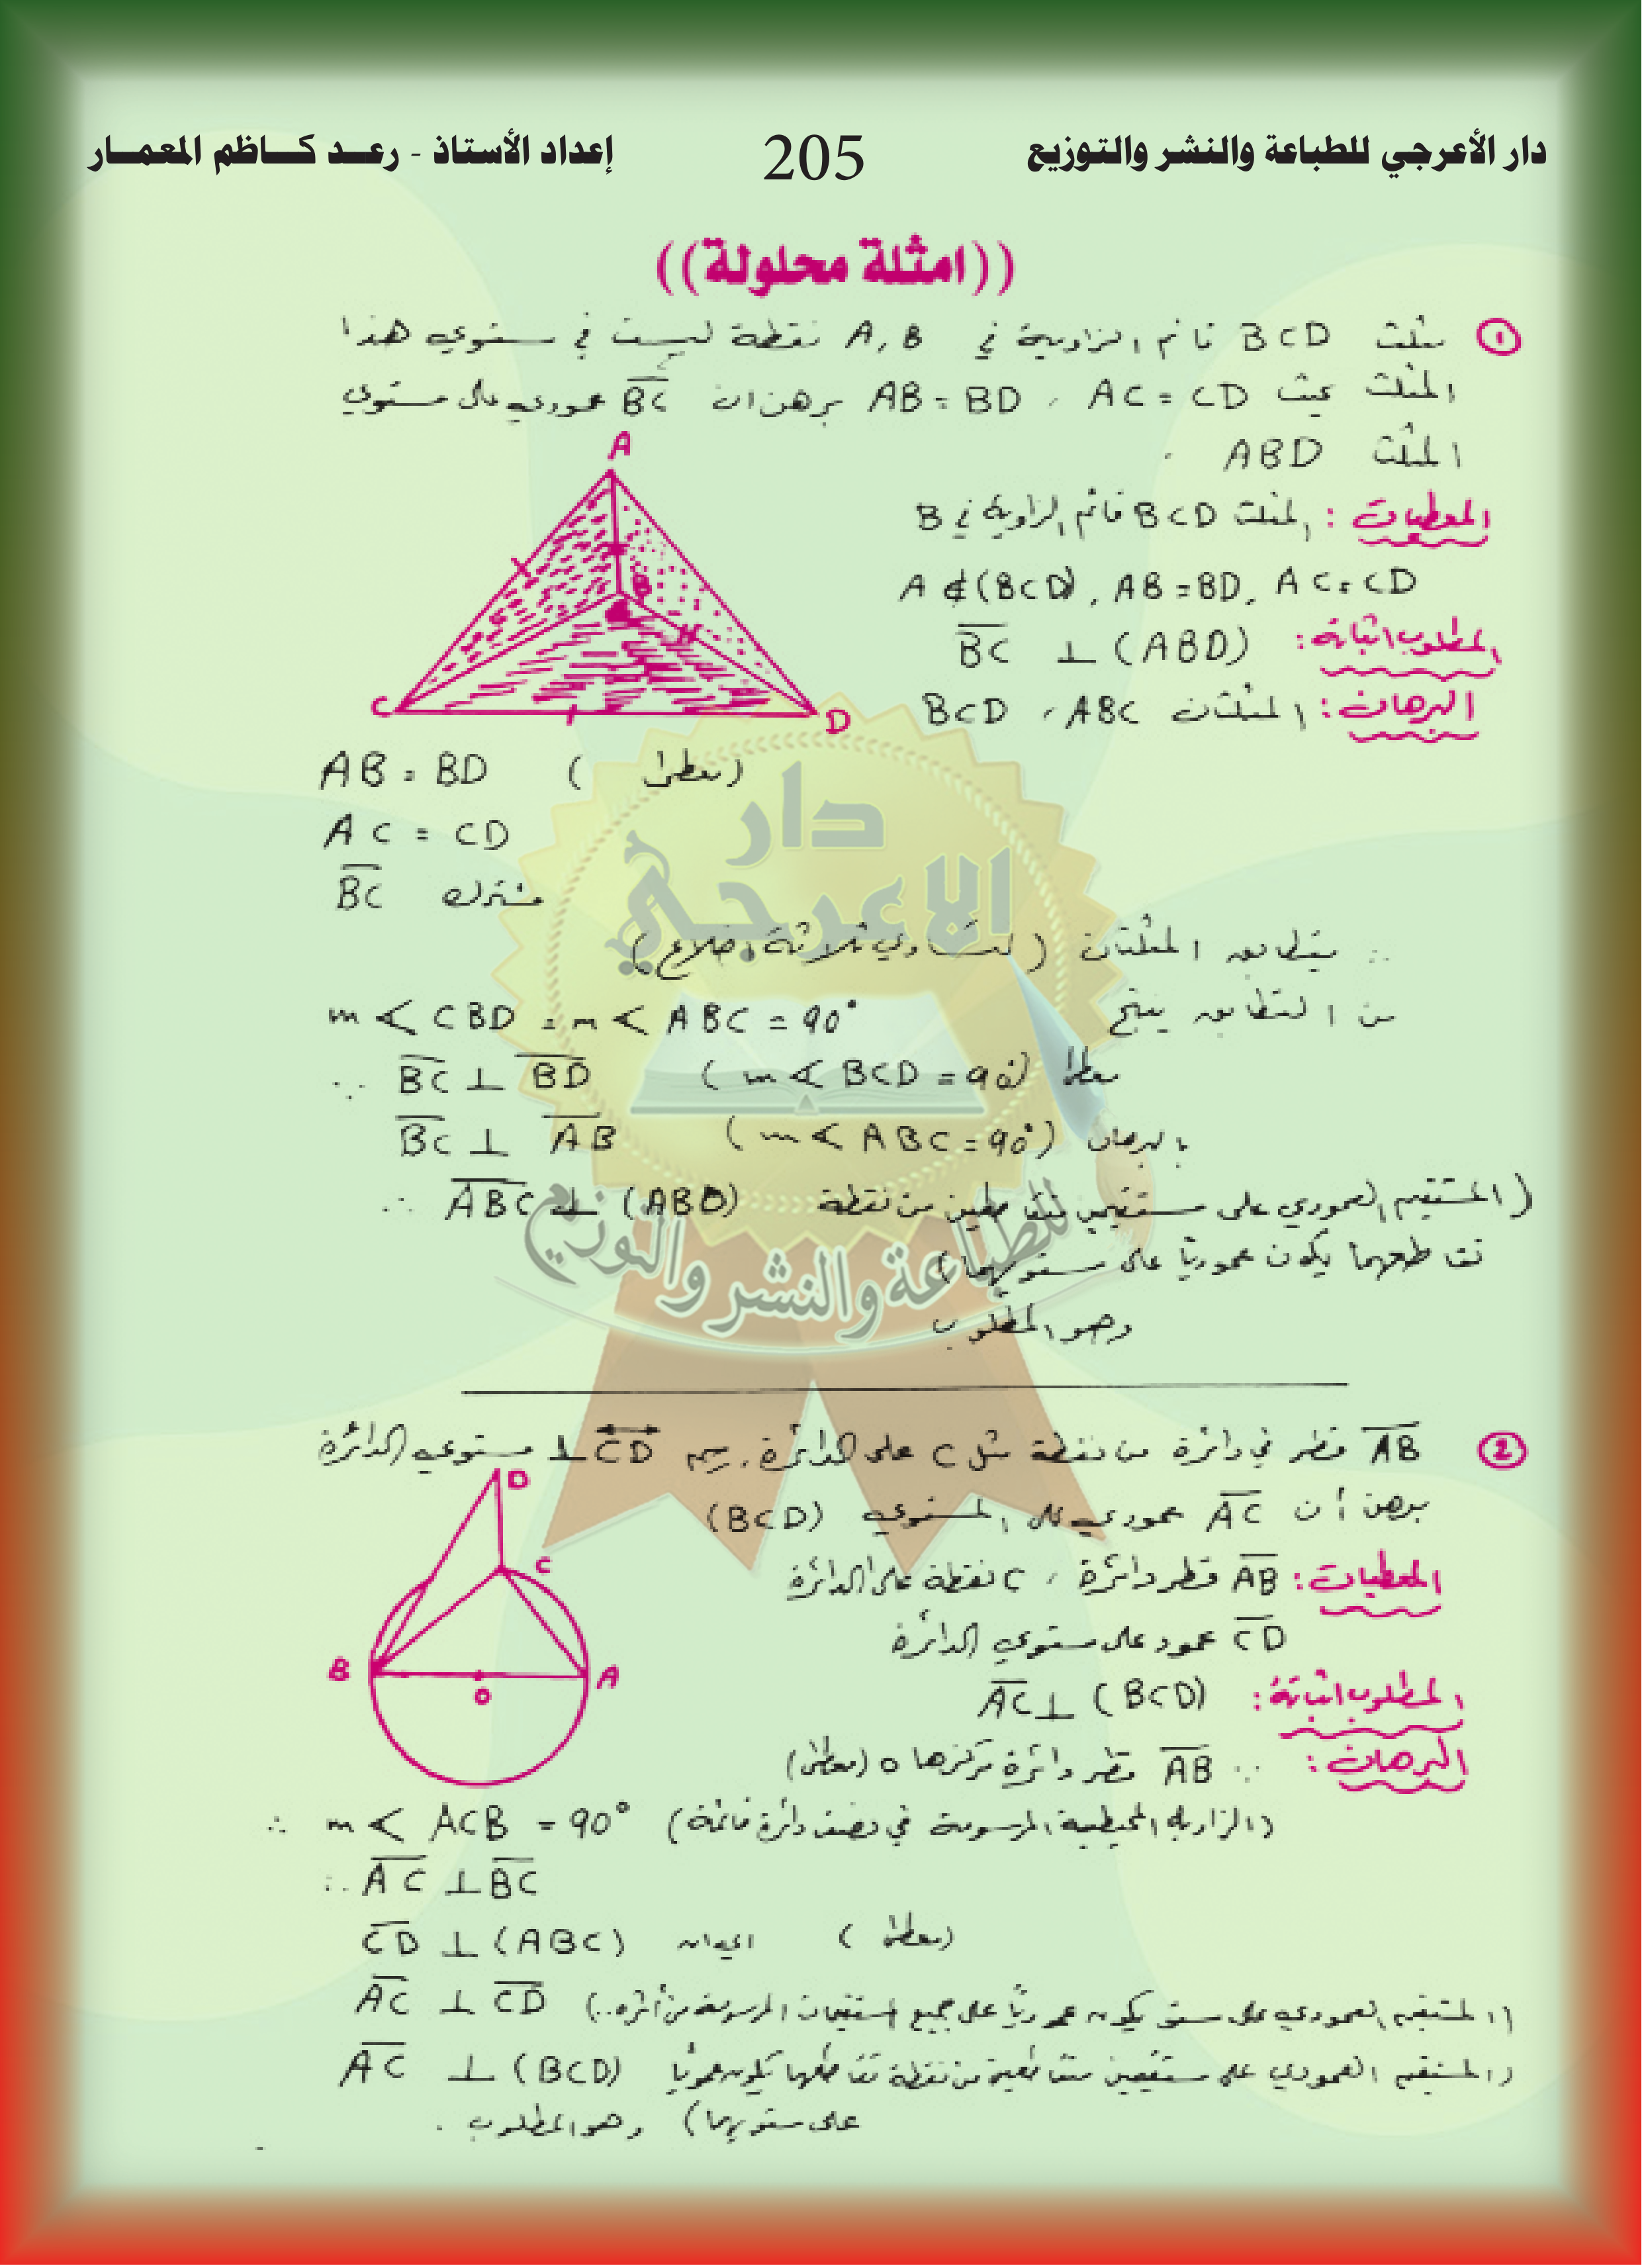 دار الأعرجي للطباعة والنشر والتوزيع 205 إعداد الأستاذ - رعد كاظم المعمار
((امثلة محلولة))
① مثلث BCD قائم الزاوية في B ,A نقطة ليست في مستوي هذا
المثلث بحيث AC = CD ، AB = BD برهن ان BC عمودي على مستوي
المثلث ABD .
A
B
C
D
المعطيات : المثلث BCD قائم الزاوية في B
A ∉ (BCD) , AB = BD , AC = CD
المطلوب اثباته : BC ⊥ (ABD)
البرهان : المثلثان ABC ، BCD
AB = BD (معطى)
AC = CD
BC مشترك
∴ يتطابق المثلثان (لتساوي ثلاثة اضلاع)
من التطابق ينتج m∢CBD = m∢ABC = 90°
∵ BC ⊥ BD (m∢BCD = 90°) معطى
BC ⊥ AB (m∢ABC = 90°) بالبرهان
∴ ABC ⊥ (ABD) (المستقيم العمودي على مستقيمين متقاطعين من نقطة
تقاطعهما يكون عمودياً على مستويهما)
وهو المطلوب
② AB قطر في دائرة من نقطة مثل C على الدائرة . رسم CD ⊥ مستوي الدائرة
برهن أن AC عمودي على المستوي (BCD)
D
C
B
A
O
المعطيات : AB قطر دائرة ، C نقطة على الدائرة
CD عمود على مستوي الدائرة
المطلوب اثباته : AC ⊥ (BCD)
البرهان : ∵ AB قطر دائرة مركزها O (معطى)
∴ m∢ACB = 90° (الزاوية المحيطية المرسومة في نصف دائرة قائمة)
∴ AC ⊥ BC
CD ⊥ (ABC) (معطى)
AC ⊥ CD (المستقيم العمودي على مستو يكون عمودياً على جميع المستقيمات المرسومة من أثره..)
AC ⊥ (BCD) (المستقيم العمودي على مستقيمين متقاطعين من نقطة تقاطعهما يكون عمودياً
على مستويهما) وهو المطلوب .
دار
الاعرجي
للطباعة والنشر والتوزيع